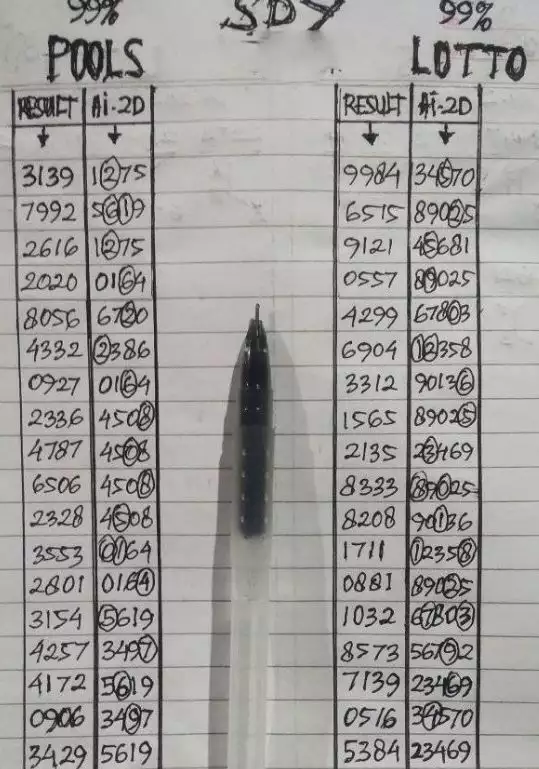 99% SDY 99%
POOLS LOTTO
RESULT Ai-2D RESULT Ai-2D
3139 1275 9984 34570
7992 5619 6515 89025
2616 1275 9121 45681
2020 0164 0557 89025
8056 6780 4299 67803
4332 2386 6904 12358
0927 0164 3312 90136
2336 4508 1565 89025
4787 4508 2135 23469
6506 4508 8333 89025
2328 4508 8208 90136
3553 0164 1711 12358
2801 0164 0881 89025
3154 5619 1032 67803
4257 3497 8573 56792
4172 5619 7139 23469
0906 3497 0516 34570
3429 5619 5384 23469